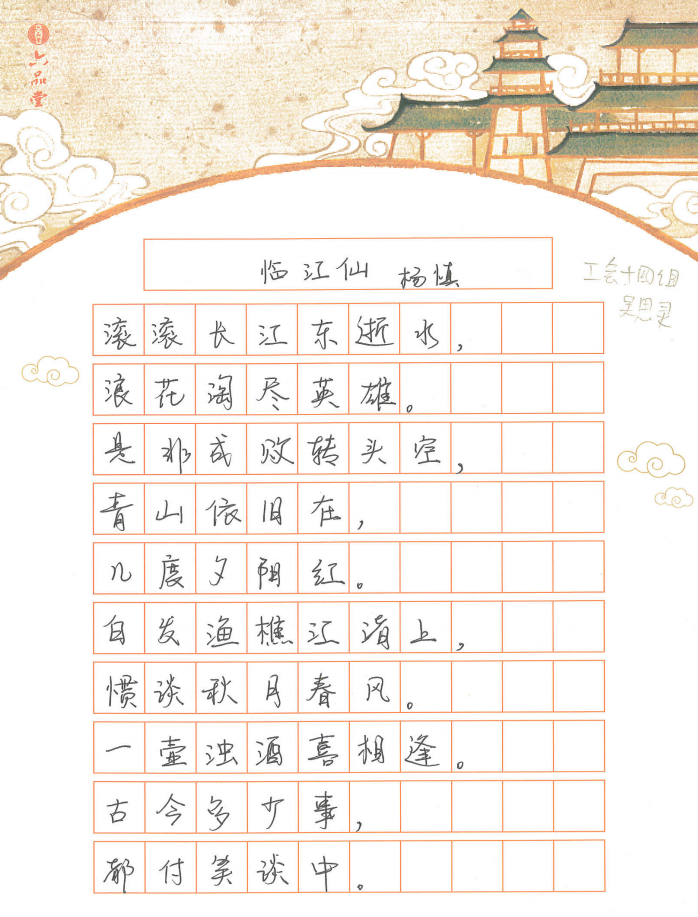 六品堂
临江仙 杨慎
工会十四组
吴思灵
滚滚长江东逝水,
浪花淘尽英雄。
是非成败转头空,
青山依旧在,
几度夕阳红。
白发渔樵江渚上,
惯谈秋月春风。
一壶浊酒喜相逢。
古今多少事,
都付笑谈中。